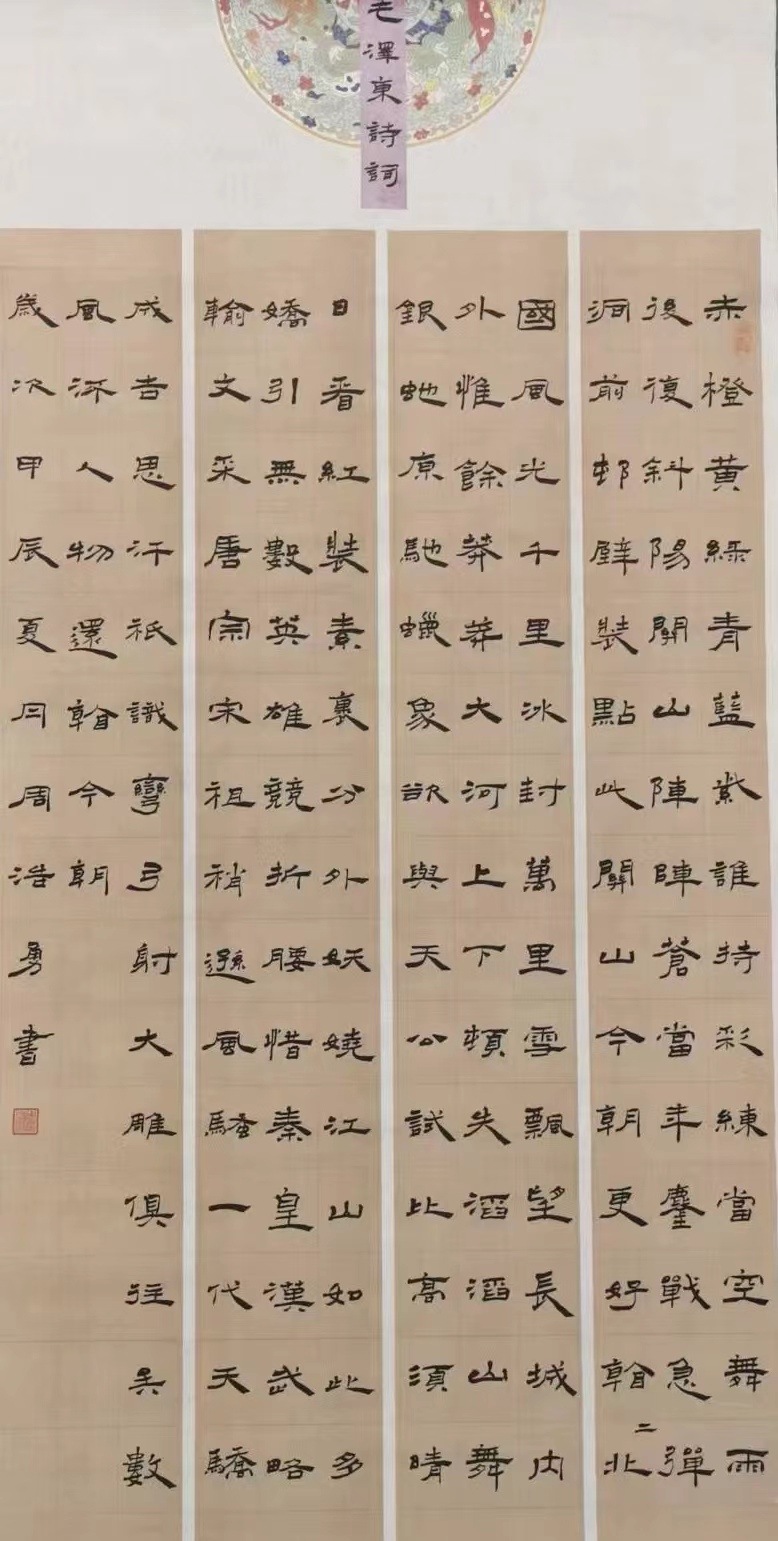 毛澤東詩詞
赤橙黃綠青藍紫誰持彩練當空舞雨
後復斜陽關山陣陣蒼當年鏖戰急彈
洞前邨壁裝點此關山今朝更好看二北
國風光千里冰封萬里雪飄望長城內
外惟餘莽莽大河上下頓失滔滔山舞
銀虵原馳蠟象欲與天公試比高須晴
日看紅裝素裹分外妖嬈江山如此多
嬌引無數英雄競折腰惜秦皇漢武略
輸文采唐宗宋祖稍遜風騷一代天驕
成吉思汗祇識彎弓射大雕俱往矣數
風流人物還看今朝
歲次甲辰夏月周浩勇書